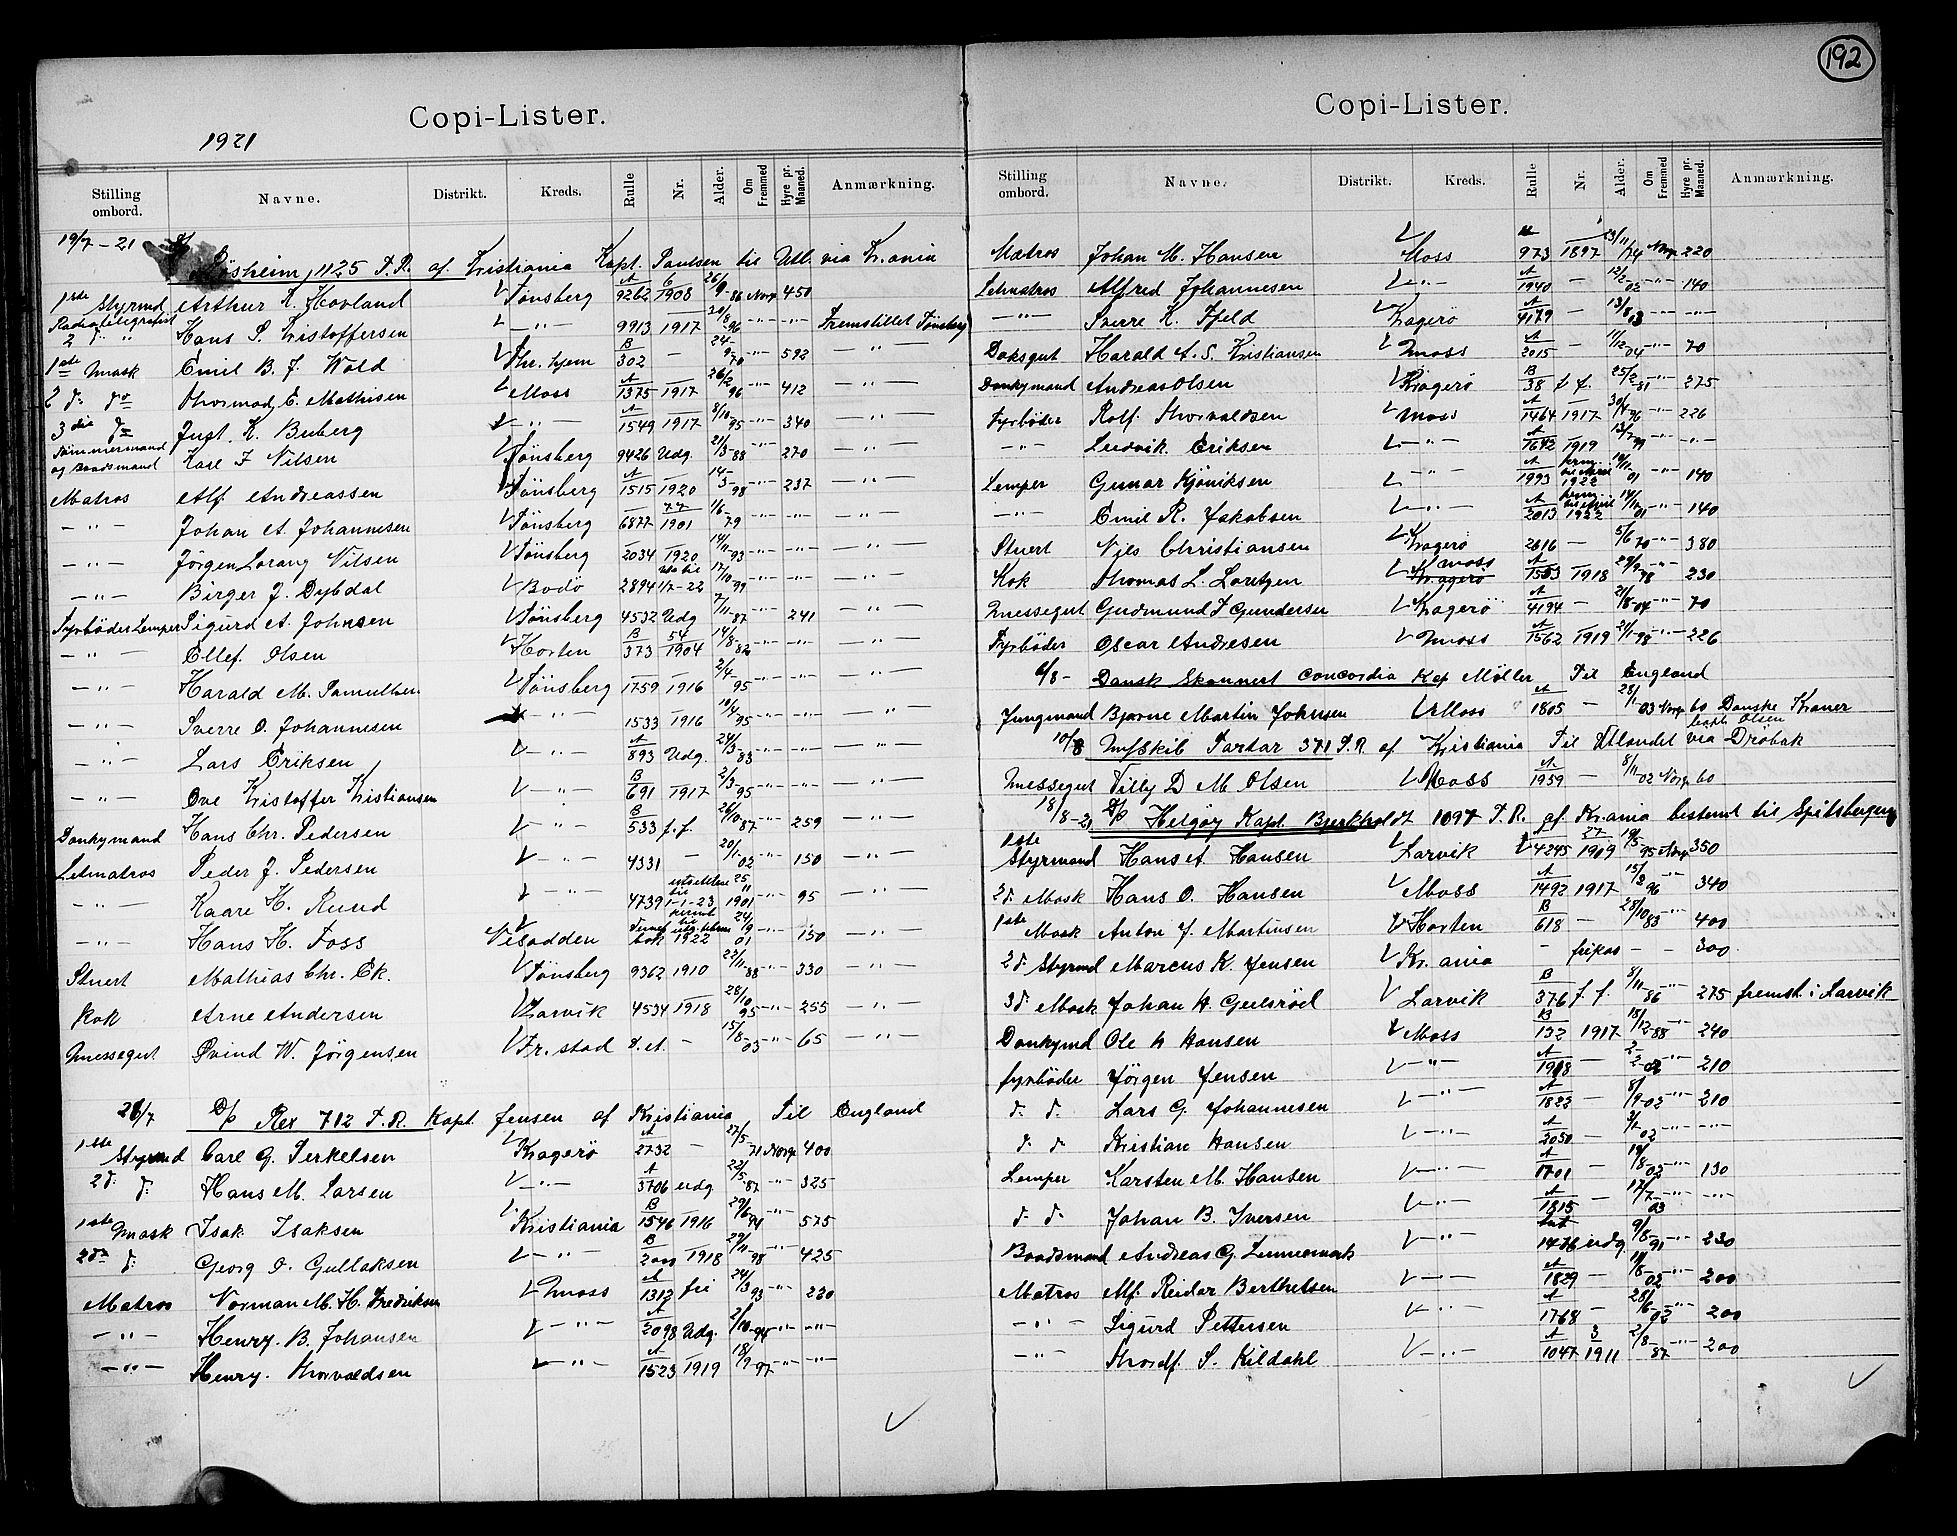 192
Copi-Lister.
1921
Stilling ombord. Navne. Distrikt. Kreds. Rulle Nr. Alder. Om Fremmed Hyre pr. Maaned. Anmærkning.
19/7-21
1125 T.R. af Kristiania Kapt. Paulsen til Utl. via Kr.ania
1ste Styrmd Arthur K. Hovland Tønsberg A 9262 6 1908 86 Norge 450
Radiotelegrafist
2 " " Hans S. Kristoffersen — " — 9913 1917 20/8-96 — " — — " — Fremstillet Tønsberg
1ste Mask Emil B. J. Wold Thr.hjem B 302 — 24-9 70 — " — 592 — " —
2d: do Thormod E. Mathisen Moss A 1375 1917 26/2 96 — " — 412 — " —
3die do Just. K. Buberg — " — A 1549 1917 8/10 95 — " — 340 — " —
Tømmermand og Baadsmand Karl J Nilsen Tønsberg 9426 Udg. 21/3-88 — " — 270 — " —
Matros Alf Andreassen Tønsberg A 1515 1920 14-3-98 — " — 237 — " —
— " — Johan A. Johannesen Tønsberg 6877 77 1901 1/6-79 — " — — " — — " —
— " — Jørgen Lorang Nilsen Tønsberg 2034 1920 14/11-93 — " — — " — — " —
— " — Birger J. Dybdal Bodø 2894 1/7-22 17/10-99 — " — — " — — " —
Fyrbøder Lemper Sigurd A. Johnsen Tønsberg 4532 Udg 7/11-87 — " — 241 — " —
— " — Ellef. Olsen Horten B 373 54 1904 14/8 82 — " — — " — — " —
— " — Harald M. Samuelsen Tønsberg 1759 1916 2/4-95 — " — — " — — " —
— " — Sverre O. Johannesen — " — 1533 1916 10/4-95 — " — — " — — " —
— " — Lars Eriksen — " — A 893 Udg. 24/3-83 — " — — " — — " —
— " — Ove Kristoffer Kristiansen — " — B 691 1917 2/3-95 — " — — " — — " —
Donkymand Hans Chr. Pedersen — " — B 533 f.f. 26/10 87 — " — 259 — " —
Letmatros Peder J. Pedersen — " — 4331 — 20/1-02 — " — 150 — " —
— " — Kaare H. Rund — " — 4739 utsættelse til 1-1-23 25 11 1901 — " — 95 — " —
— " — Hans H. Foss Notodden 1922 24/9 01 — " — 150 — " —
Stuert Mathias Chr. Ek. Tønsberg 9362 1910 22/11-88 — " — 330 — " —
Kok Arne Andersen Larvik 4534 1918 28/10 95 — " — 255 — " —
Messegut Øvind W. Jørgensen Fr.stad — 15/8-03 — " — 65 — " —
D/S Rex 712 T.R. Kapt. Jensen af Kristiania Til England
1ste Styrmd Carl G. Terkelsen Kragerø A 2732 — 27/5 71 Norge 400
2d: d: Hans M. Larsen — " — A 3706 udg 22/5-87 — " — 325
1ste Mask Isak Isaksen Kristiania B 1546 1916 29/6 94 — " — 575
2de d: Georg O. Gullaksen — " — B 2000 1918 29/11-98 — " — 425
Matros Norman M. H. Fredriksen Moss A 1312 fri 24/3 93 — " — 220
— " — Henry. B. Johansen — " — A 2098 Udg. 2/10-94 — " — — " —
— " — Henry. Thorvaldsen — " — A 1523 1919 18/7-97 — " — — " —
Copi-Lister.
Stilling ombord. Navne. Distrikt. Kreds. Rulle Nr. Alder. Om Fremmed Hyre pr. Maaned. Anmærkning.
Matros Johan M. Hansen Moss 973 1897 23/11/74 Norge 220
Letmatros Alfred Johannesen — " — A 1940 — 12/2-02 — " — 140
— " — Sverre K. Fjeld Kragerø A 4179 — 13/8 03 — " — — " —
Daksgut Harald A. S. Kristiansen Moss A 2015 — 11/12 04 — " — 70
Donkymand Andreas Olsen Kragerø B 38 f.f. 25/2 81 — " — 275
Fyrbøder Rolf Thorvaldsen Moss A 1464 1917 30/4 96 — " — 226
— " — Ludvik Eriksen — " — A 1642 1919 13/7 99 — " — — " —
Lemper Gunar Kjøniksen — " — A 1993 1922 19/11-01 — " — 140
— " — Emil R. Jakobsen — " — A 2013 1922 14/11 01 — " — 140
Stuert Nils Christiansen Kragerø 2616 — 5/6 70 — " — 380
Kok Thomas L. Lorentzen Moss Kragerø A 1553 1918 29/9 98 — " — 230
Messegut Gudmund J Gundersen Kragerø A 4194 — 21/8-04 — " — 70
Fyrbøder Oscar Andresen Moss A 1562 1919 21/1-98 — " — 226
6/8- Dansk Skonnert Concordia Kap Møller Til England
Jungmand Bjarne Martin Johnsen Moss A 1805 — 28/1 03 Norge 60 Danske Kroner
10/8 M/Skib Tartar 371 T.R. af Kristiania Til Utlandet via Drøbak
Kapt. Olsen
Messegut Tilly D M. Olsen Moss A 1959 — 8/11-02 Norge 60
18/8-21 D/S Helgøy Kapt. Bjerkholdt 1097 T.R. af Kr.ania bestemt til Spitsbergen
1ste Styrmand Hans A. Hansen Larvik 4245 27 1909 19/5 95 Norge 350
2d. Mask Hans O. Hansen Moss A 1492 1917 15/2 96 340
1ste Mask Anton J. Martinsen Horten B 618 — 28/10 83 — " — 400
2d. Styrmd Marcus K. Jensen Kr.ania — frikas — — 300
3d. Mask Johan H. Gulsrød Larvik B 376 f.f. 8/11 86 — " — 275 fremst. i Larvik
Donkymd Ole H Hansen Moss B 132 1917 18/12-88 — " — 240
fyrbøder Jørgen Jensen — " — A 1918 — 2-2-02 — " — 210
d. d. Lars G. Johannesen — " — A 1822 — 8/9-02 — " — 210
d. d. Kristian Hansen — " — A 2050 — 3/1 02 — " — — " —
Lemper Karsten M. Hansen — " — A 1701 — 19/8-02 — " — 130
d. d. Johan B. Iversen — " — A 1815 — 17/7 03 — " — — " —
Baadsmand Andreas G. Lunnemark — " — 1476 udg 9/8-91 — " — 230
Matros Alf Reidar Berthelsen — " — A 1829 — 11/8-02 — " — 200
— " — Sigurd Pettersen — " — A 1768 — 28/6-02 — " — 200
— " — Thordf. S. Kildahl — " — A 1047 3 1911 2/8-87 — " — 200